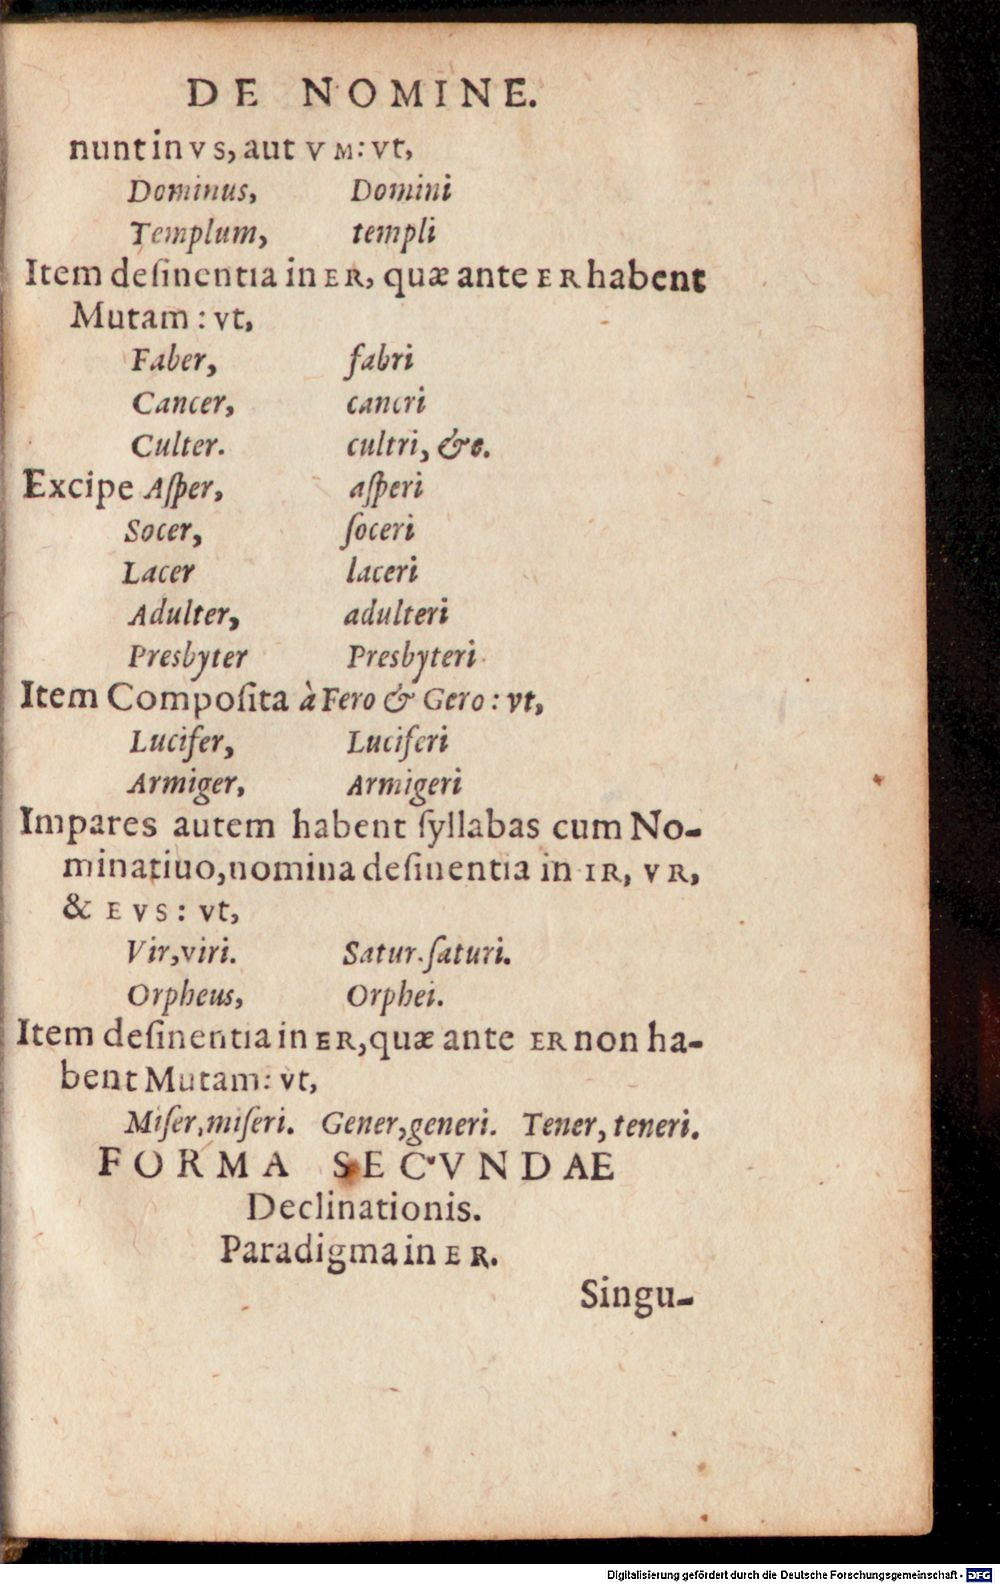 DE NOMINE.
nunt in vs, aut vm: vt,
Dominus, Domini
Templum, templi
Item deſinentia in ER, quæ ante ER habent
Mutam : vt,
Faber, fabri
Cancer, cancri
Culter. cultri, &c.
Excipe Aſper, aſperi
Socer, ſoceri
Lacer laceri
Adulter, adulteri
Presbyter Presbyteri
Item Compoſita à Fero & Gero : vt,
Lucifer, Luciferi
Armiger, Armigeri
Impares autem habent ſyllabas cum No-
minatiuo, nomina deſinentia in IR, VR,
& EVS : vt,
Vir, viri. Satur. ſaturi.
Orpheus, Orphei.
Item deſinentia in ER, quæ ante ER non ha-
bent Mutam: vt,
Miſer, miſeri. Gener, generi. Tener, teneri.
FORMA SECVNDAE
Declinationis.
Paradigma in ER.
Singu-
Digitalisierung gefördert durch die Deutsche Forschungsgemeinschaft - DFG